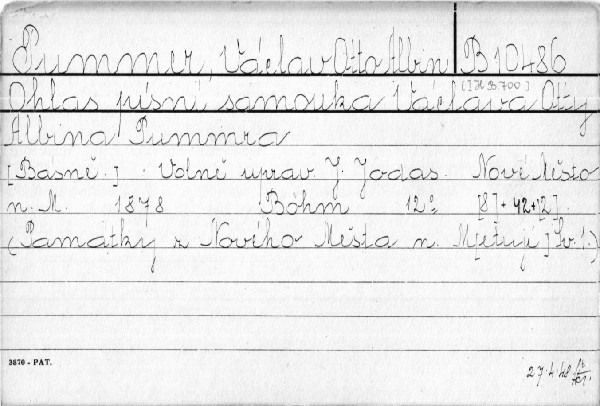 Pummer, Václav Otto Albin B 10486
Ohlas písní samouka Václava Otty
[II H B 700]
Albina Pummra
[Básně.] Volně uprav. J. Jodas. Nové Město
n. M. 1878 Böhm 12° [8] + 42 + [2].
(Památky z Nového Města n. M[etují] Sv. 1.)
3870 - PAT.
27.4.48